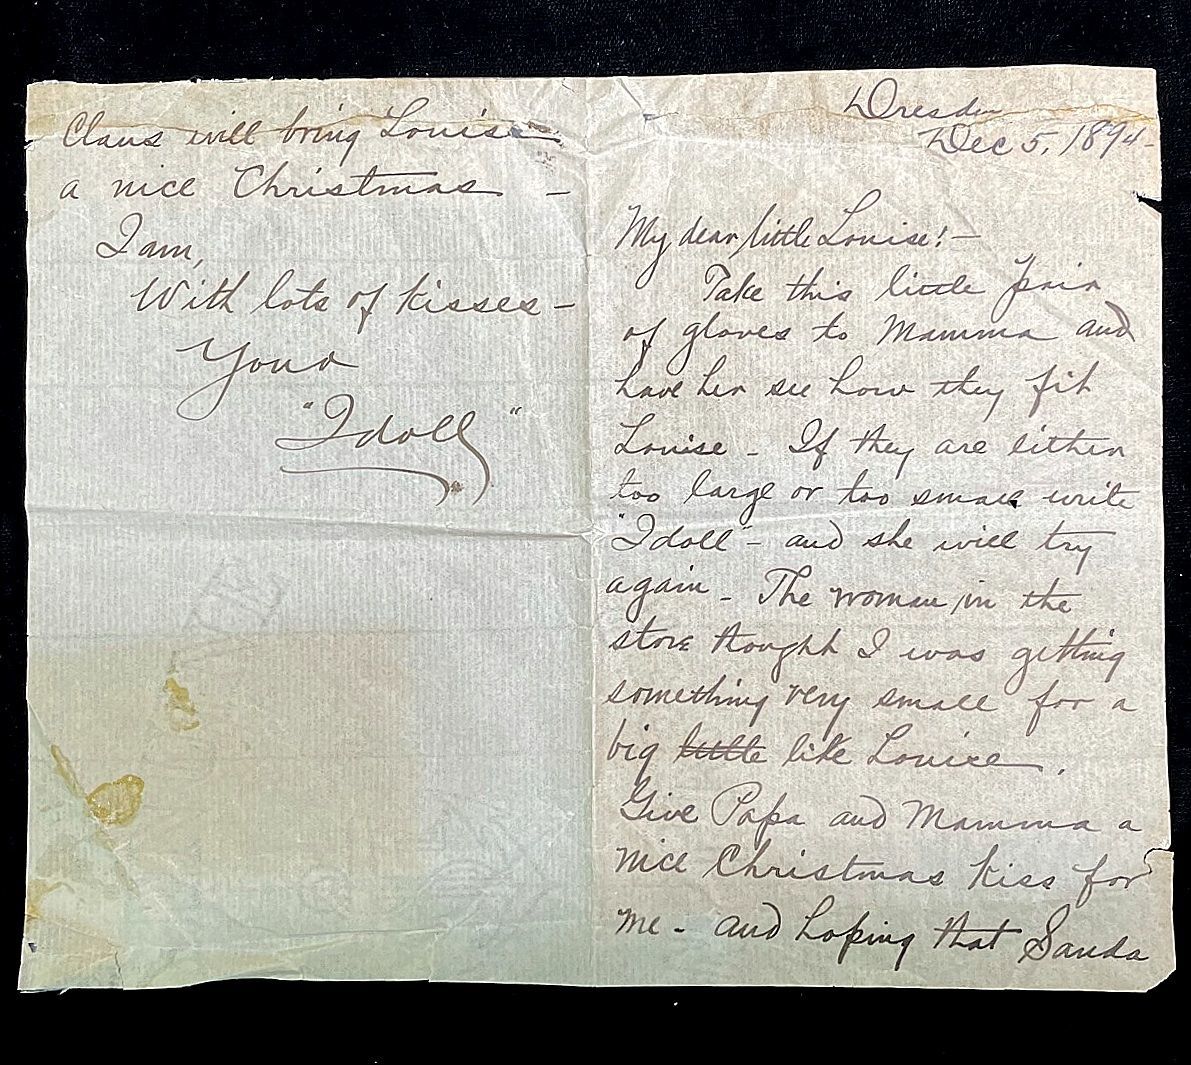 Dresden
Dec 5, 1894-
My dear little Louise! -
Take this little pair
of gloves to Mamma and
have her see how they fit
Louise - If they are either
too large or too small write
"Idoll" - and she will try
again - The woman in the
store thought I was getting
something very small for a
big little like Louise.
Give Papa and Mamma a
nice Christmas kiss for
me - and hoping that Santa
Claus will bring Louise
a nice Christmas -
I am,
With lots of kisses -
Your
"Idoll"